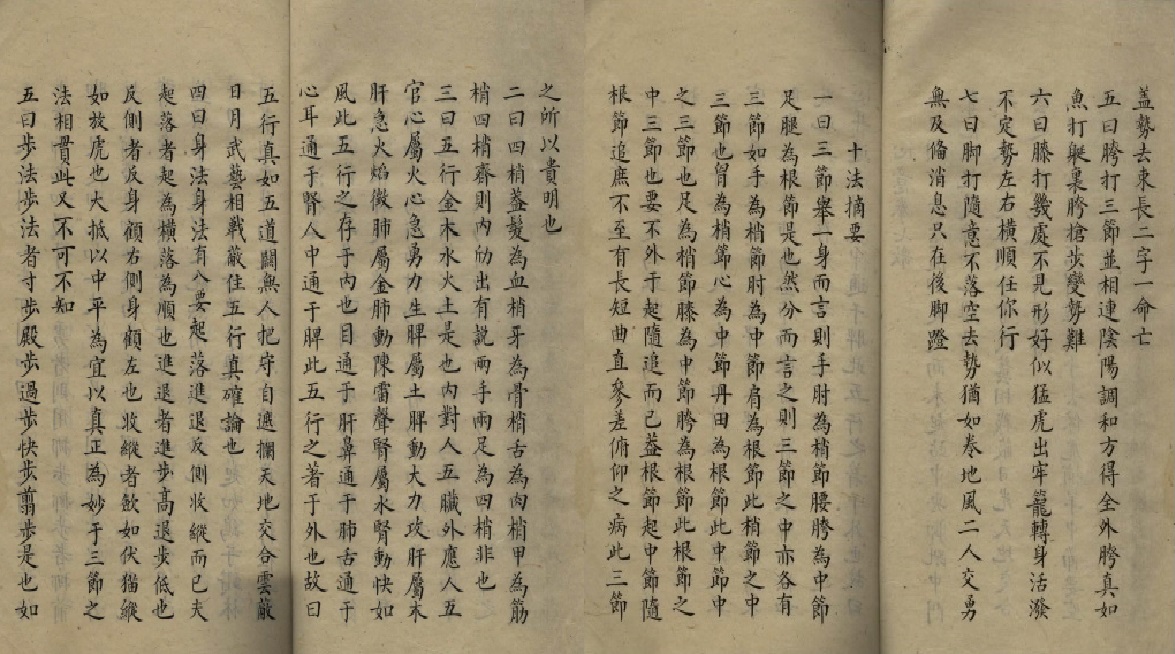 盖勢去來長二字一命亡
五曰胯打三節並相連陰陽調和方得全外胯真如
魚打艇裹胯槍步變勢難
六曰膝打幾處不見形好似猛虎出牢籠轉身活潑
不定勢左右橫順任你行
七曰脚打隨意不落空去勢猶如卷地風二人交勇
無及偹消息只在後脚蹬
十法摘要
一曰三節舉一身而言則手肘為梢節腰胯為中節
足腿為根節是也然分而言之則三節之中亦各有
三節如手為梢節肘為中節肩為根節此梢節之中
三節也胷為梢節心為中節丹田為根節此中節中
之三節也足為梢節膝為中節胯為根節此根節之
中三節也要不外于起隨追而已葢根節起中節隨
根節追庶不至有長短曲直參差俯仰之病此三節
之所以貴明也
二曰四梢葢髮為血梢牙為骨梢舌為肉梢甲為筋
梢四梢齊則內劤出有説兩手兩足為四梢非也
三曰五行金木水火土是也內對人五臟外應人五
官心屬火心急勇力生脾屬土脾動大力攻肝屬木
肝急火焰微肺屬金肺動陳雷聲腎屬水腎動快如
風此五行之存于內也目通于肝鼻通于肺舌通于
心耳通于腎人中通于脾此五行之著于外也故曰
五行真如五道關無人把守自遮攔天地交合雲蔽
日月武藝相戰蔽住五行真確論也
四曰身法身法有八要起落進退反側收縱而已夫
起落者起為橫落為順也進退者進步高退步低也
反側者反身顧右側身顧左也收縱者歛如伏猫縱
如放虎也大抵以中平為宜以真正為妙于三節之
法相貫此又不可不知
五曰步法步法者寸步殿步過步快步翦步是也如